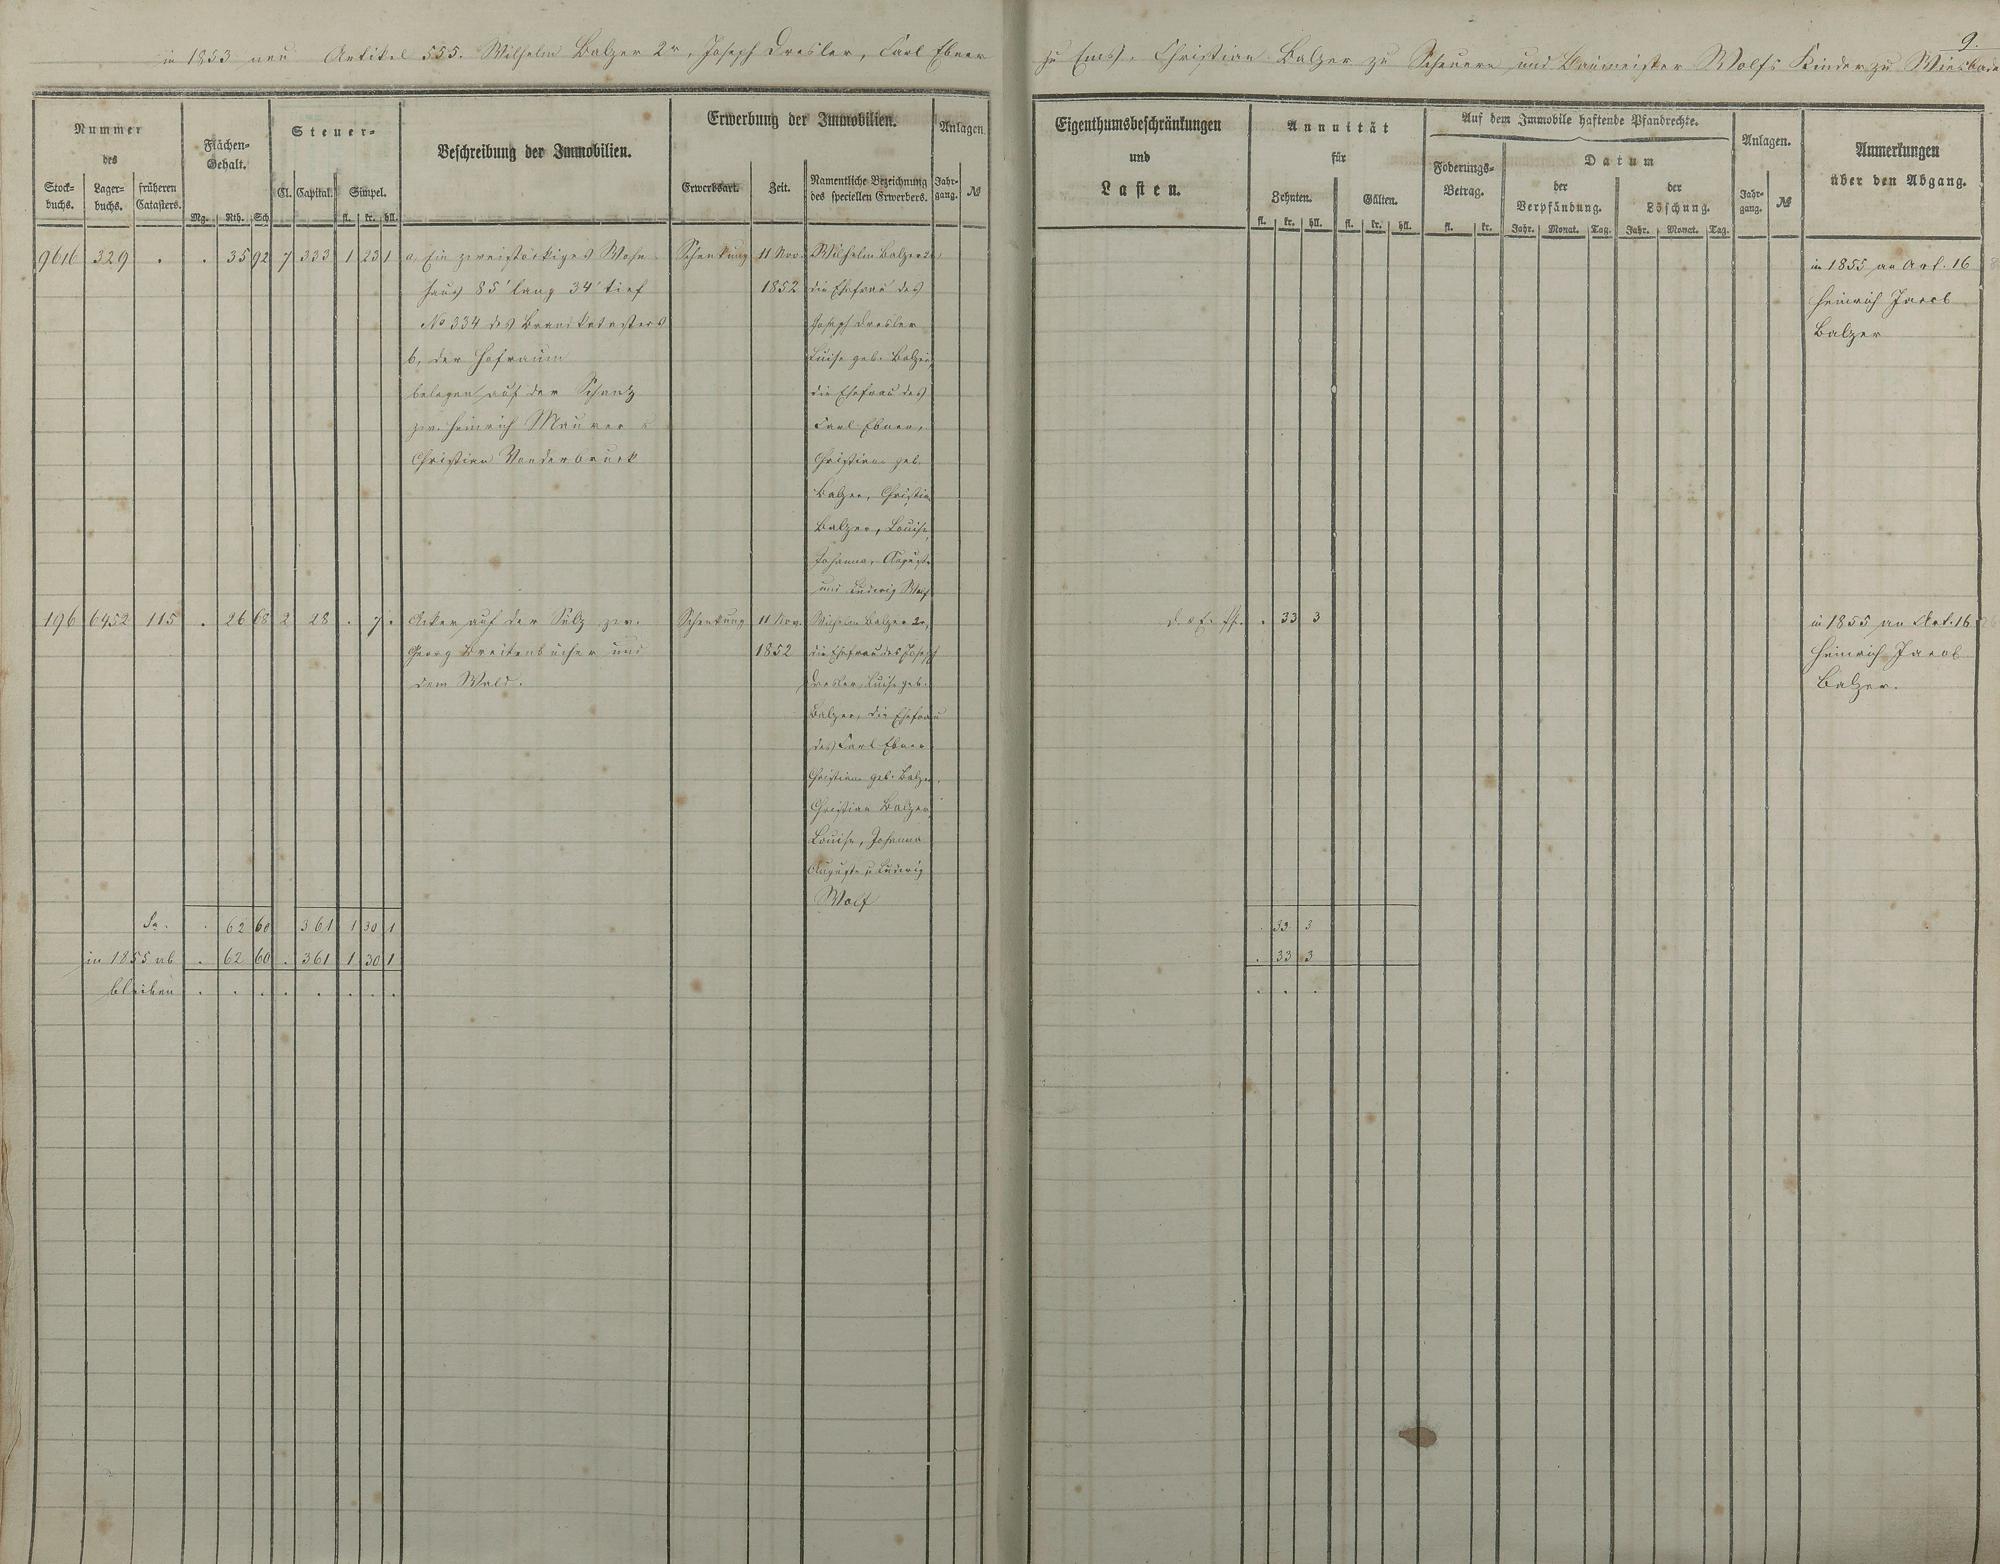 9.
in 1853 neu Artikel 555. Wilhelm Balzer 2r, Joseph Dresler, Carl Ebner zu Ems, Christian Balzer zu Scheuern und Baumeister Wolfs Kinder zu Wiesbaden
Nummer
des
Stock-
buchs.
Lager-
buchs.
früheren
Catasters.
Flächen-
Gehalt.
Mg. Rth. Sch
Steuer-
Cl. Capital. Simpel.
fl. kr. hll.
Beschreibung der Immobilien.
Erwerbung der Immobilien.
Erwerbsart. Zeit.
Namentliche Bezeichnung
des speciellen Erwerbers.
Anlagen.
Jahr-
gang.
№
Eigenthumsbeschränkungen
und
Lasten.
Annuität
für
Zehnten. Gülten.
fl. kr. hll. fl. kr. hll.
Auf dem Immobile haftende Pfandrechte.
Foderungs-
Betrag.
fl. kr.
Datum
der
Verpfändung.
der
Löschung.
Jahr. Monat. Tag. Jahr. Monat. Tag.
Anlagen.
Jahr-
gang.
№
Anmerkungen
über den Abgang.
9616 329 . . 35 92 7 333 1 23 1
a, Ein zweistöckiges Wohn-
haus 85' lang 34' tief
No 334 des Brandkatasters
b, der Hofraum
belegen auf der Schanz
zw. Heinrich Maurer u
Christian Vonderbruck
Schenkung 11 Nov.
1852
Wilhelm Balzer 2r,
die Ehefrau des
Joseph Dresler
Luise geb. Balzer,
die Ehefrau des
Carl Ebner,
Christiane geb.
Balzer, Christian
Balzer, Louise,
Johanna, Auguste
und Ludwig Wolf
in 1855 an Art. 16
Heinrich Jacob
Balzer
196 6452 115 . 26 68 2 28 . 7 .
Acker auf der Sulz zw.
Georg Breitenbücher und
dem Wald.
Schenkung 11 Nov.
1852
Wilhelm Balzer 2r,
die Ehefrau des Joseph
Dresler, Luise geb.
Balzer, die Ehefrau
des Carl Ebner
Christiane geb. Balzer,
Christian Balzer
Louise, Johanna
Auguste u Ludwig
Wolf
. 33 3
in 1855 an Art. 16
Heinrich Jacob
Balzer.
Sa. . 62 60 . 361 1 30 1 . 33 3
in 1855 ab . 62 60 . 361 1 30 1 . 33 3
bleiben . . . . . . . . . . .